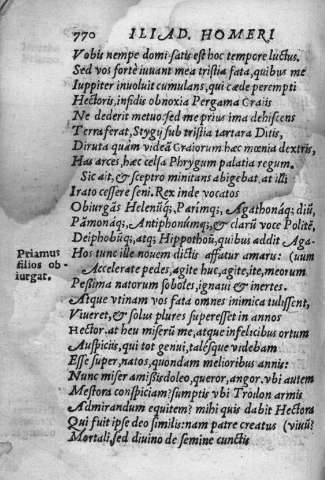 770 ILIAD. HOMERI
Vobis nempe domi satis est hoc tempore luctus.
Sed vos fortè iuuant mea tristia fata, quibus me
Iuppiter inuoluit cumulans, qui cæde perempti
Hectoris, infidis obnoxia Pergama Graiis
Ne dederit metuo: sed me prius ima dehiscens
Terra ferat, Stygij sub tristia tartara Ditis,
Diruta quàm videā Graiorum hæc mœnia dextris,
Has arces, hæc celsa Phrygum palatia regum.
Sic ait, & sceptro minitans abigebat, at illi
Irato cessere seni. Rex inde vocatos
Obiurgās Helenūq;, Parimq;, Agathonáq; diū,
Pámonáq;, Antiphonúmq;, & clarū voce Politē,
Deiphobūq;, atq; Hippothoū, quibus addit Aga-
Hos tunc ille nouem dictis affatur amaris: (uum
Priamus
filios ob-
iurgat.
Accelerate pedes, agite huc, agite, ite, meorum
Pessima natorum soboles, ignaui & inertes.
Atque vtinam vos fata omnes inimica tulissent,
Viueret, & solus plures superesset in annos
Hector. at heu miserū me, atque infelicibus ortum
Auspiciis, qui tot genui, talésque videbam
Esse super, natos, quondam melioribus annis:
Nunc miser amissis doleo, queror, angor. vbi autem
Mestora conspiciam? sumptis vbi Troilon armis
Admirandum equitem? mihi quis dabit Hectora
Qui fuit ipse deo similis: nam patre creatus (viuū?
Mortali, sed diuino de semine cunctis